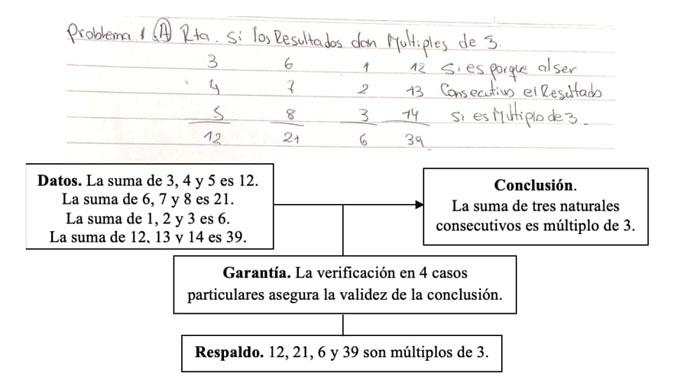 Problema 1 (A) Rta. Si los Resultados dan Multiples de 3.
3 6 1 12 Si es porque al ser
4 7 2 13 Consecutivo el Resultado
5 8 3 14 Si es Multiplo de 3.
12 21 6 39
Datos. La suma de 3, 4 y 5 es 12.
La suma de 6, 7 y 8 es 21.
La suma de 1, 2 y 3 es 6.
La suma de 12, 13 y 14 es 39.
Conclusión.
La suma de tres naturales
consecutivos es múltiplo de 3.
Garantía. La verificación en 4 casos
particulares asegura la validez de la conclusión.
Respaldo. 12, 21, 6 y 39 son múltiplos de 3.